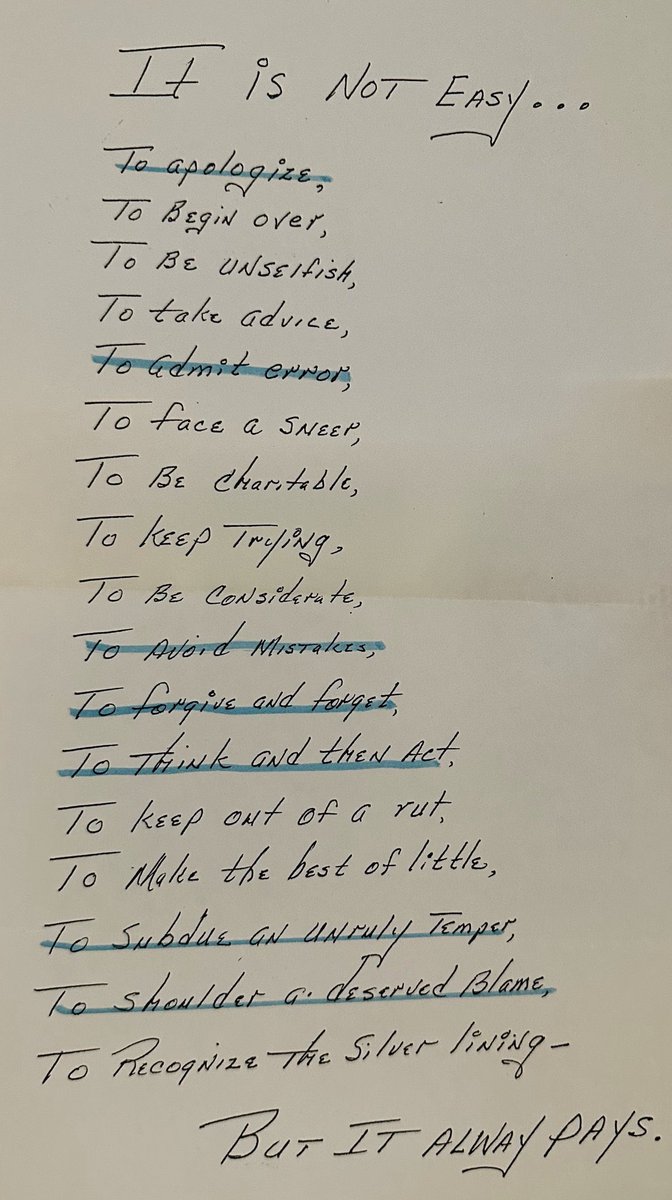 It is NOT EASY...
To apologize,
To Begin over,
To BE UNSElfish,
To take advice,
To admit error,
To face a SNEER,
To BE charitable,
To KEEP Trying,
To BE Considerate,
To Avoid Mistakes,
To forgive and forget,
To Think and then Act,
To KEEP out of a rut,
To Make the best of little,
To Subdue an unruly Temper,
To Shoulder a deserved Blame,
To Recognize The Silver lining-
BUT IT ALWAY PAYS.